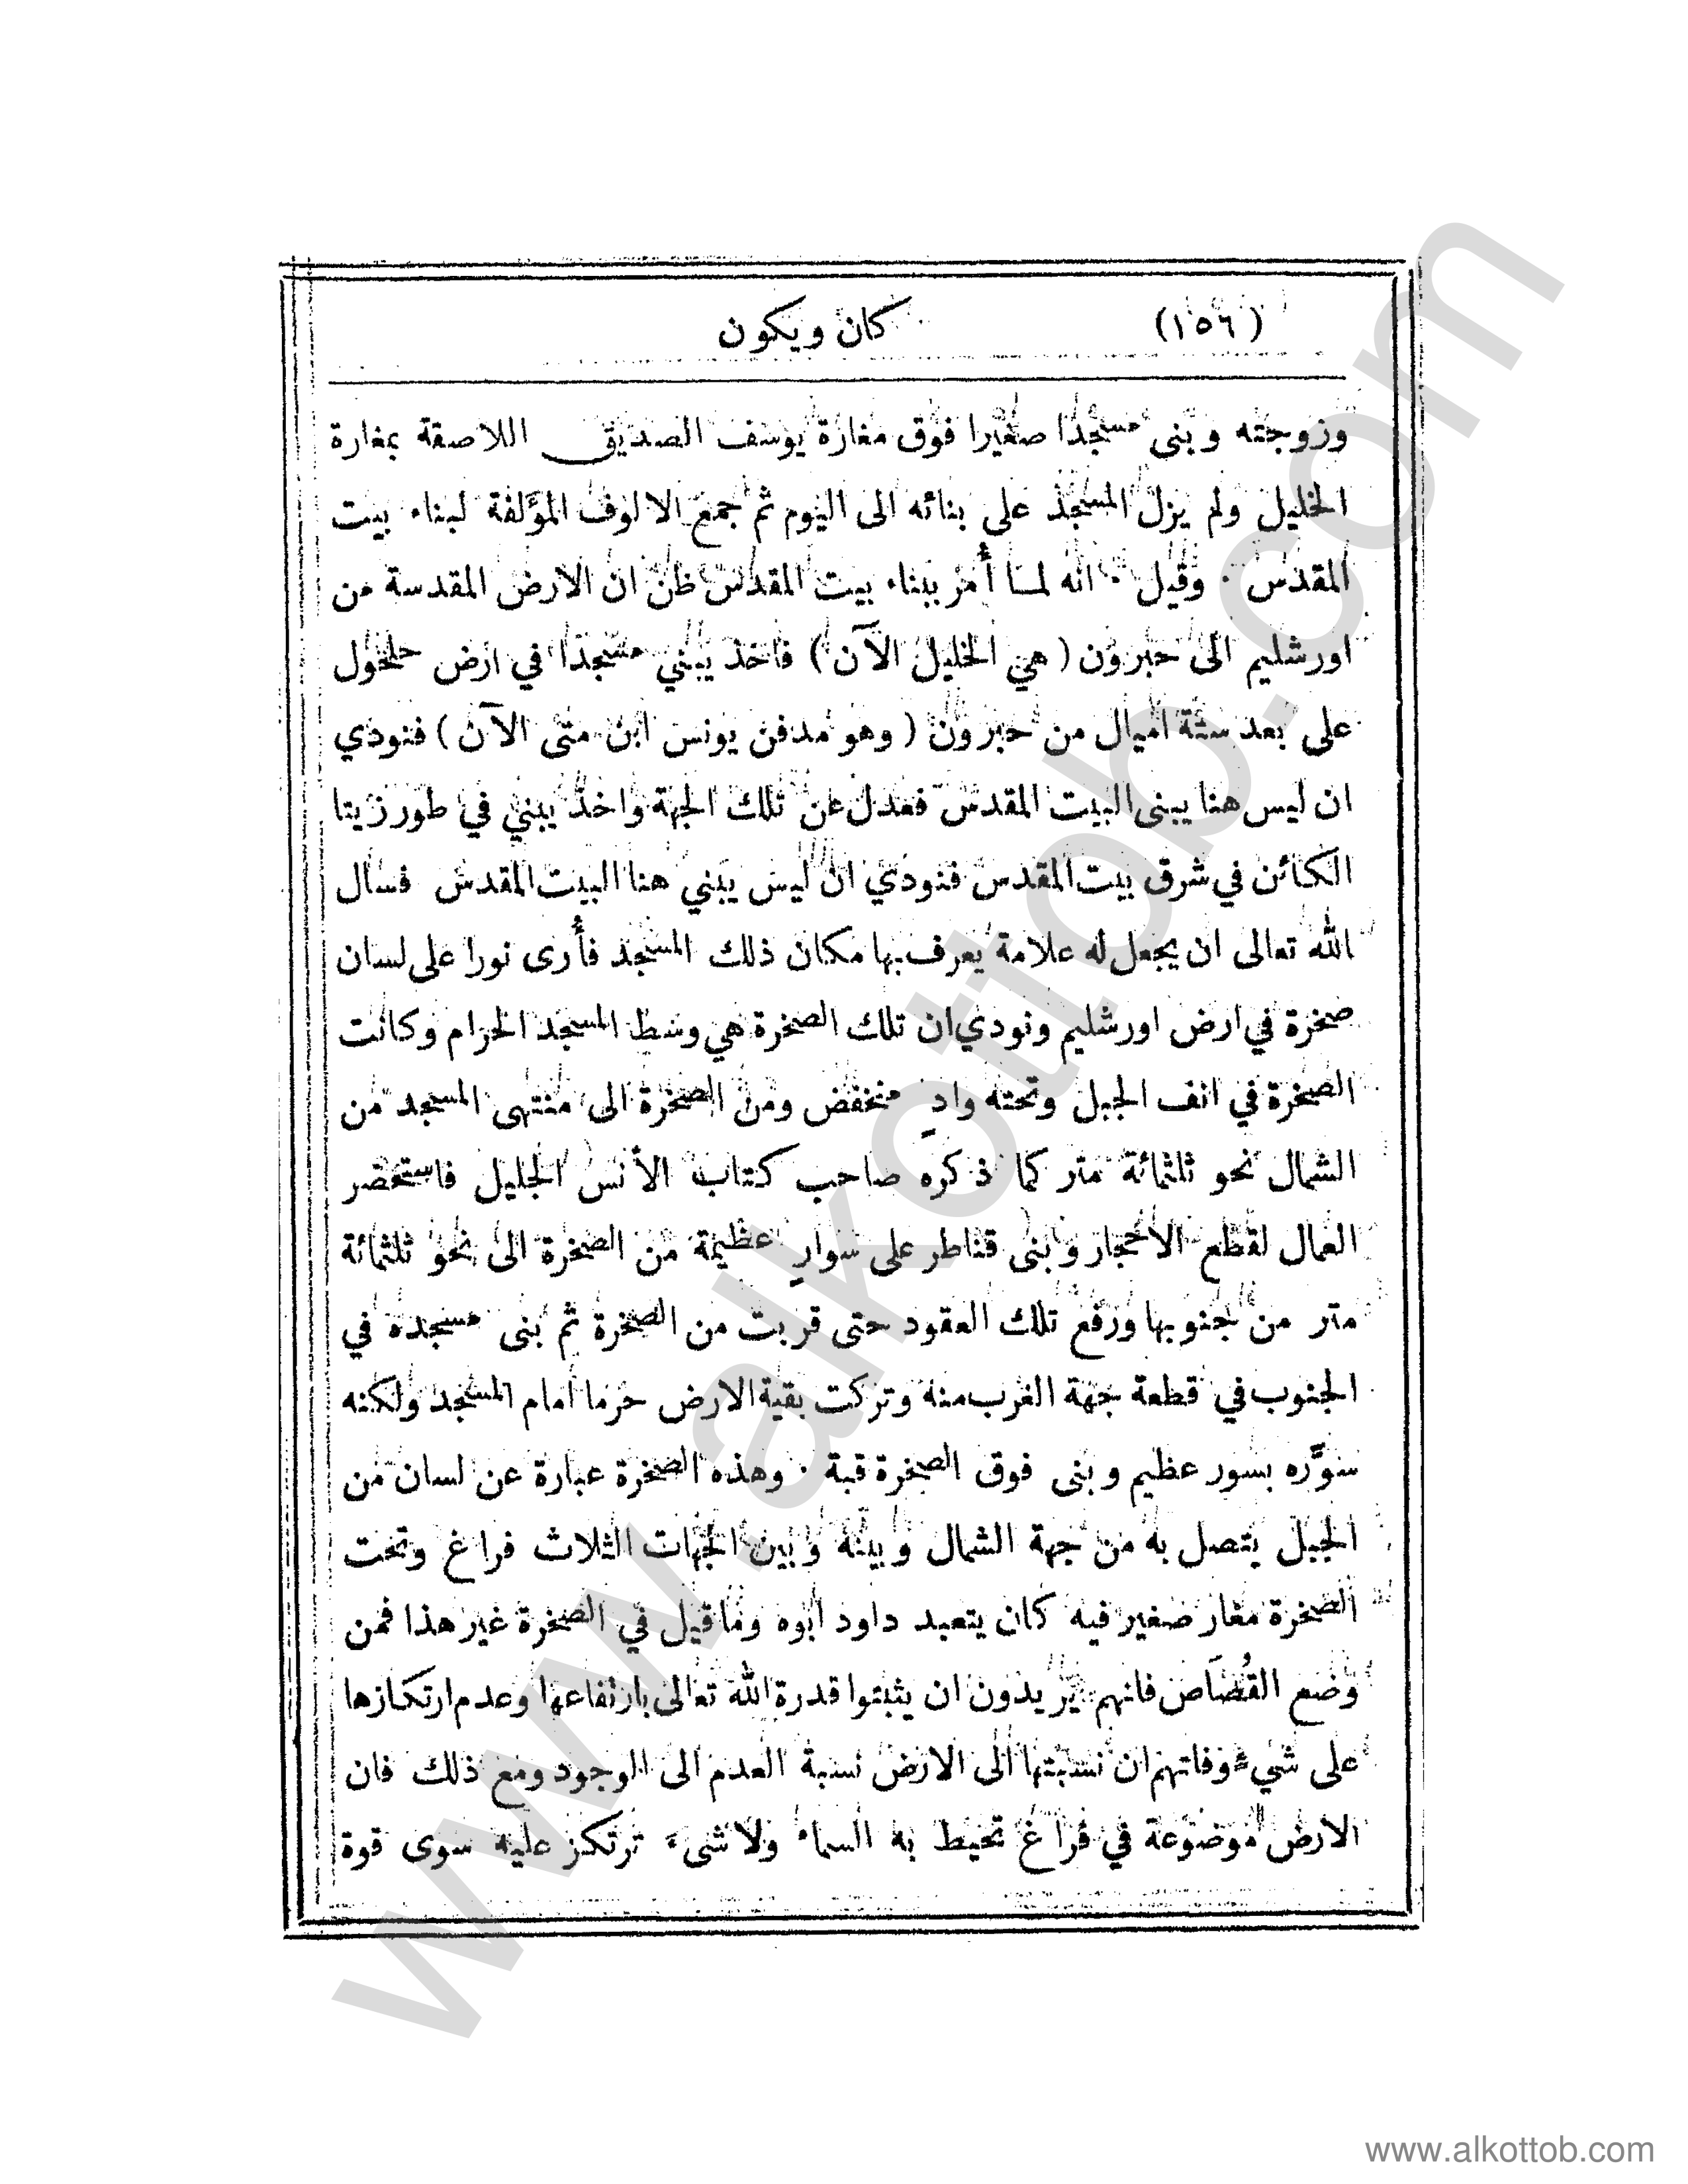 (١٥٦) كان ويكون
وزوجته وبنى مسجدا صغيرا فوق مغارة يوسف الصديق اللاصقة بمغارة
الخليل ولم يزل المسجد على بنائه الى اليوم ثم جمع الالوف المؤلفة لبناء بيت
المقدس · وقيل · انه لما أمر ببناء بيت المقدس ظن ان الارض المقدسة من
اورشليم الى حبرون ( هي الخليل الآن ) فاخذ يبني مسجدا في ارض حلحول
على بعد ستة اميال من حبرون ( وهو مدفن يونس ابن متى الآن ) فنودي
ان ليس هنا يبنى البيت المقدس فعدل عن تلك الجهة واخذ يبني في طور زيتا
الكائن في شرق بيت المقدس فنودي ان ليس يبني هنا البيت المقدس فسال
الله تعالى ان يجعل له علامة يعرف بها مكان ذلك المسجد فأرى نورا على لسان
صخرة في ارض اورشليم ونودي ان تلك الصخرة هي وسط المسجد الحرام وكانت
الصخرة في انف الجبل وتحته وادٍ منخفض ومن الصخرة الى منتهى المسجد من
الشمال نحو ثلثمائة متر كما ذكره صاحب كتاب الأنس الجليل فاستحضر
العمال لقطع الاحجار وبنى قناطر على سوارٍ عظيمة من الصخرة الى نحو ثلثمائة
متر من جنوبها ورفع تلك العقود حتى قربت من الصخرة ثم بنى مسجده في
الجنوب في قطعة جهة الغرب منه وتركت بقية الارض حرما امام المسجد ولكنه
سوَّره بسور عظيم وبنى فوق الصخرة قبة · وهذه الصخرة عبارة عن لسان من
الجبل يتصل به من جهة الشمال وبينه وبين الجهات الثلاث فراغ وتحت
الصخرة مغار صغير فيه كان يتعبد داود ابوه وما قيل في الصخرة غير هذا فمن
وضع القُصَاص فانهم يريدون ان يثبتوا قدرة الله تعالى بارتفاعها وعدم ارتكازها
على شيء وفاتهم ان نسبتها الى الارض نسبة العدم الى الوجود ومع ذلك فان
الارض موضوعة في فراغ تحيط به السماء ولا شيء ترتكز عليه سوى قوة
www.alkottob.com
www.alkottob.com